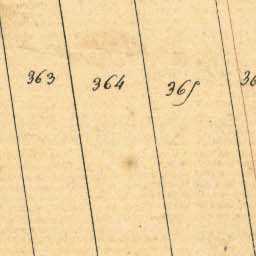 363 364 365 36